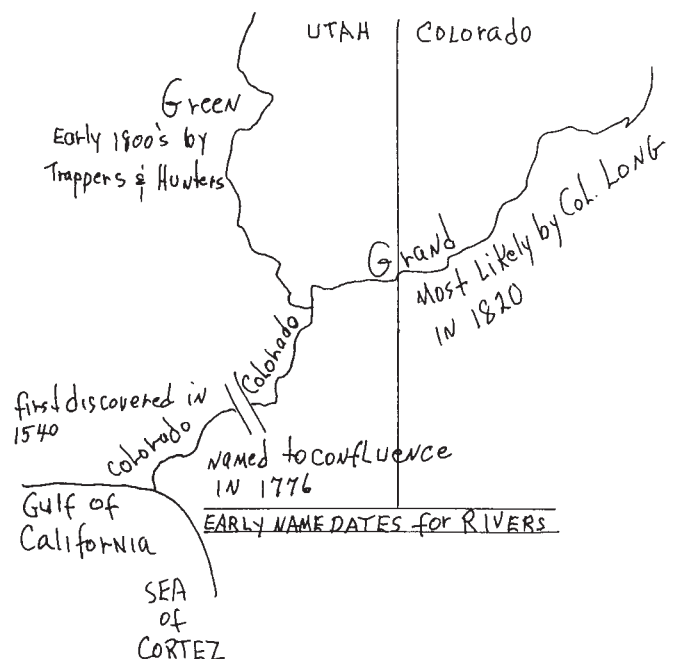 UTAH
Colorado
Green
Early 1800's by
Trappers & Hunters
Grand
Most Likely by Col. LONG
IN 1820
Colorado
first discovered in
1540
Colorado
NAMED to CONFLUENCE
IN 1776
Gulf of
CaliforNIA
EARLY NAME DATES for RIVERS
SEA
of
CORTEZ